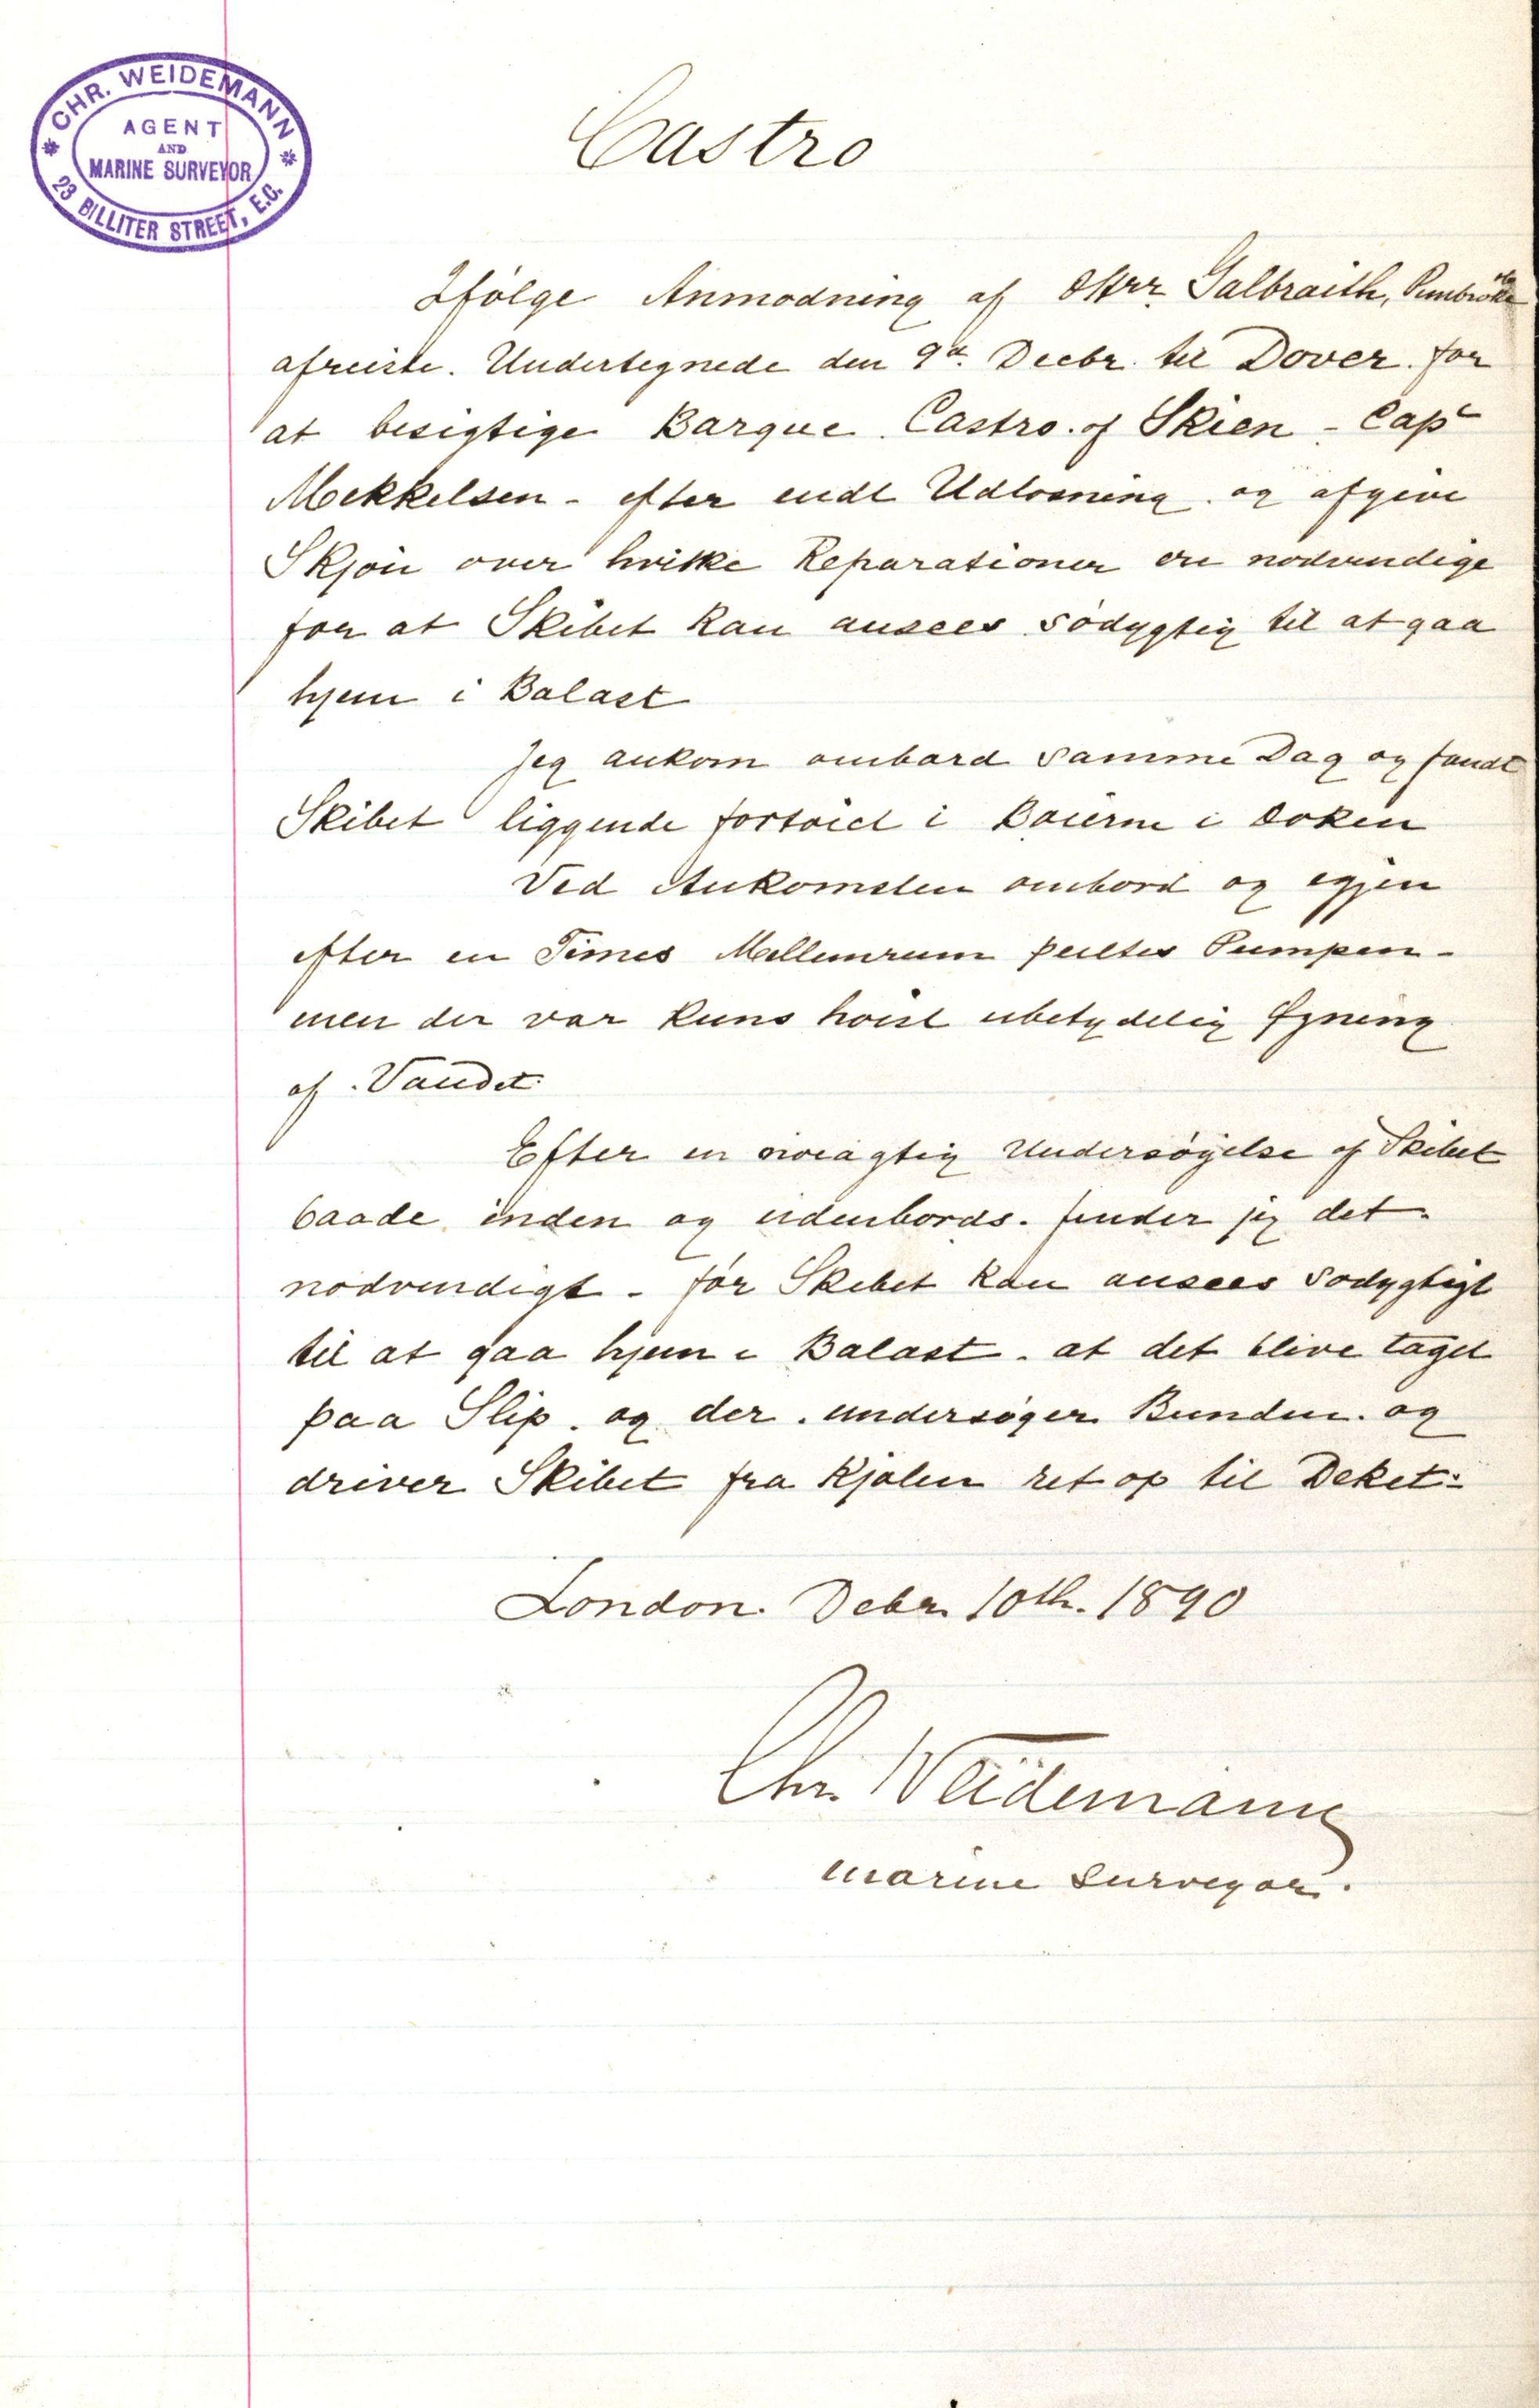 CHR. WEIDEMANN
AGENT
AND
MARINE SURVEYOR
23 BILLITER STREET, E.C.
Castro
Ifölge Anmodning af Hrr. Galbraith, Pembroke
afreiste. Undertegnede den 9de Decbr. til Dover. for
at besigtige Barque. Castro. of Skien - Capt
Mekkelsen - efter endt Udlosning. og afgive
Skjön over hvilke Reparationer ere nodvendige
for at Skibet kan ansees södygtig til at gaa
hjem i Balast
Jeg ankom ombord samme Dag og fandt
Skibet liggende fortöiet i Böierne i Doken
Ved Ankomsten ombord og igjen
efter en Times Mellemrum peiltes Pumpen -
men der var kuns höist ubetydelig Ögning
af. Vandet
Efter en nöiagtig Undersögelse af Skibet
baade. inden og udenbords. finder jeg det
nödvendigt - för Skibet kan ansees Södygtigt
til at gaa hjem i Balast. at det blive taget
paa Slip. og der. undersöger Bunden. og
driver Skibet fra Kjölen ret op til Deket -
London. Debr. 10th. 1890
Chr. Weidemann
Marine Surveyor.